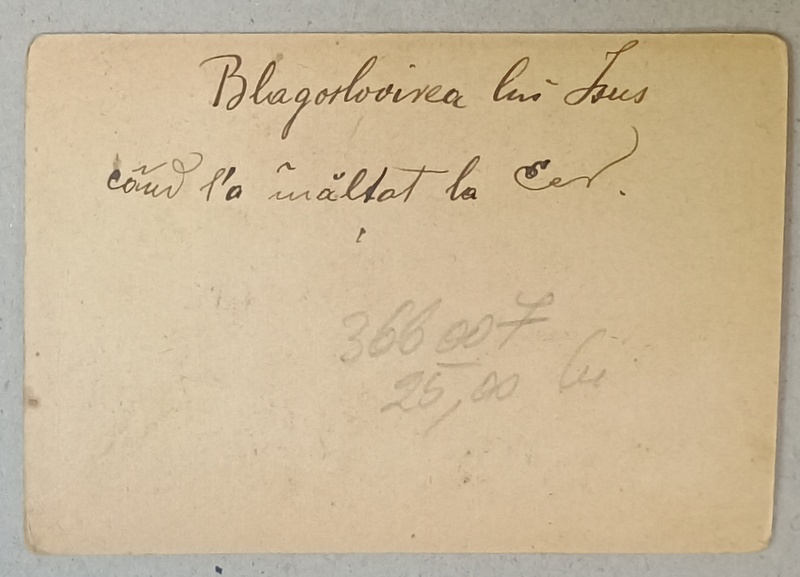 Blagoslovirea lui Isus
când l'a înălțat la Cer.
366007
25,00 lei